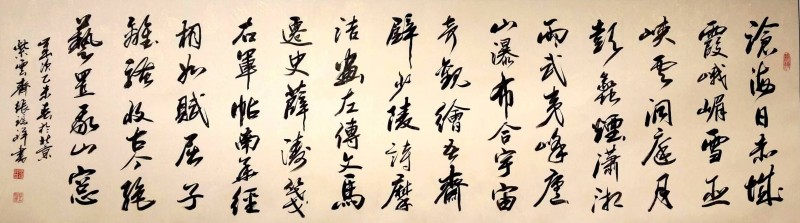 滄海日赤城
霞峨嵋雪巫
峽雲洞庭月
彭蠡煙瀟湘
雨武夷峰廬
山瀑布合宇宙
奇觀繪吾齋
壁少陵詩摩
詰畫左傳文馬
遷史薛濤箋
右軍帖南華經
相如賦屈子
離騷收古今絕
藝置我山窓
歲次乙未春於北京
紫雲齋張瑞祥書